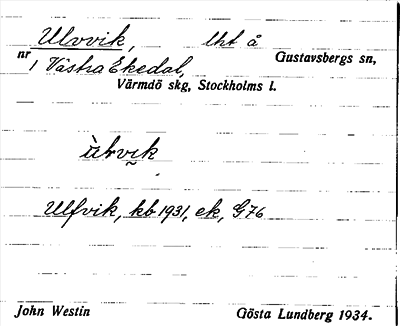 Ulvvik, lht å
nr 1 Västra Ekedal, Gustavsbergs sn,
Värmdö skg, Stockholms l.
Ulfvik, kb 1931, ek, G76
John Westin Gösta Lundberg 1934.